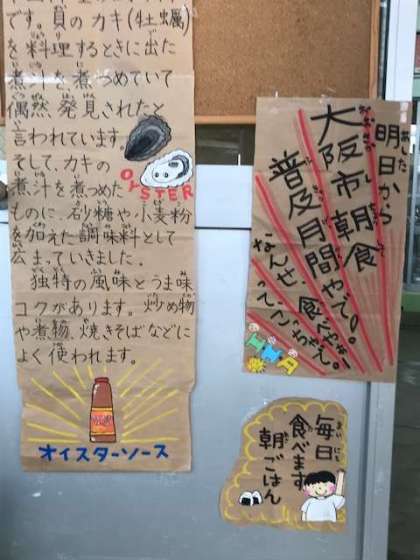 です。貝のカキ(牡蠣)
を料理するときに出た
煮汁を、煮つめていて
偶然発見されたと
言われています。
そして、カキの
煮汁を煮つめた
ものに、砂糖や小麦粉
を加えた調味料として
広まっていきました。
独特の風味とうま味
コクがあります。炒め物
や煮物、焼きそばなどに
よく使われます。
OYSTER
オイスターソース
明日から
大阪市朝食
普及月間やで!
なんせ、食べやな!
ってこっちゃで!
毎日
食べます
朝ごはん